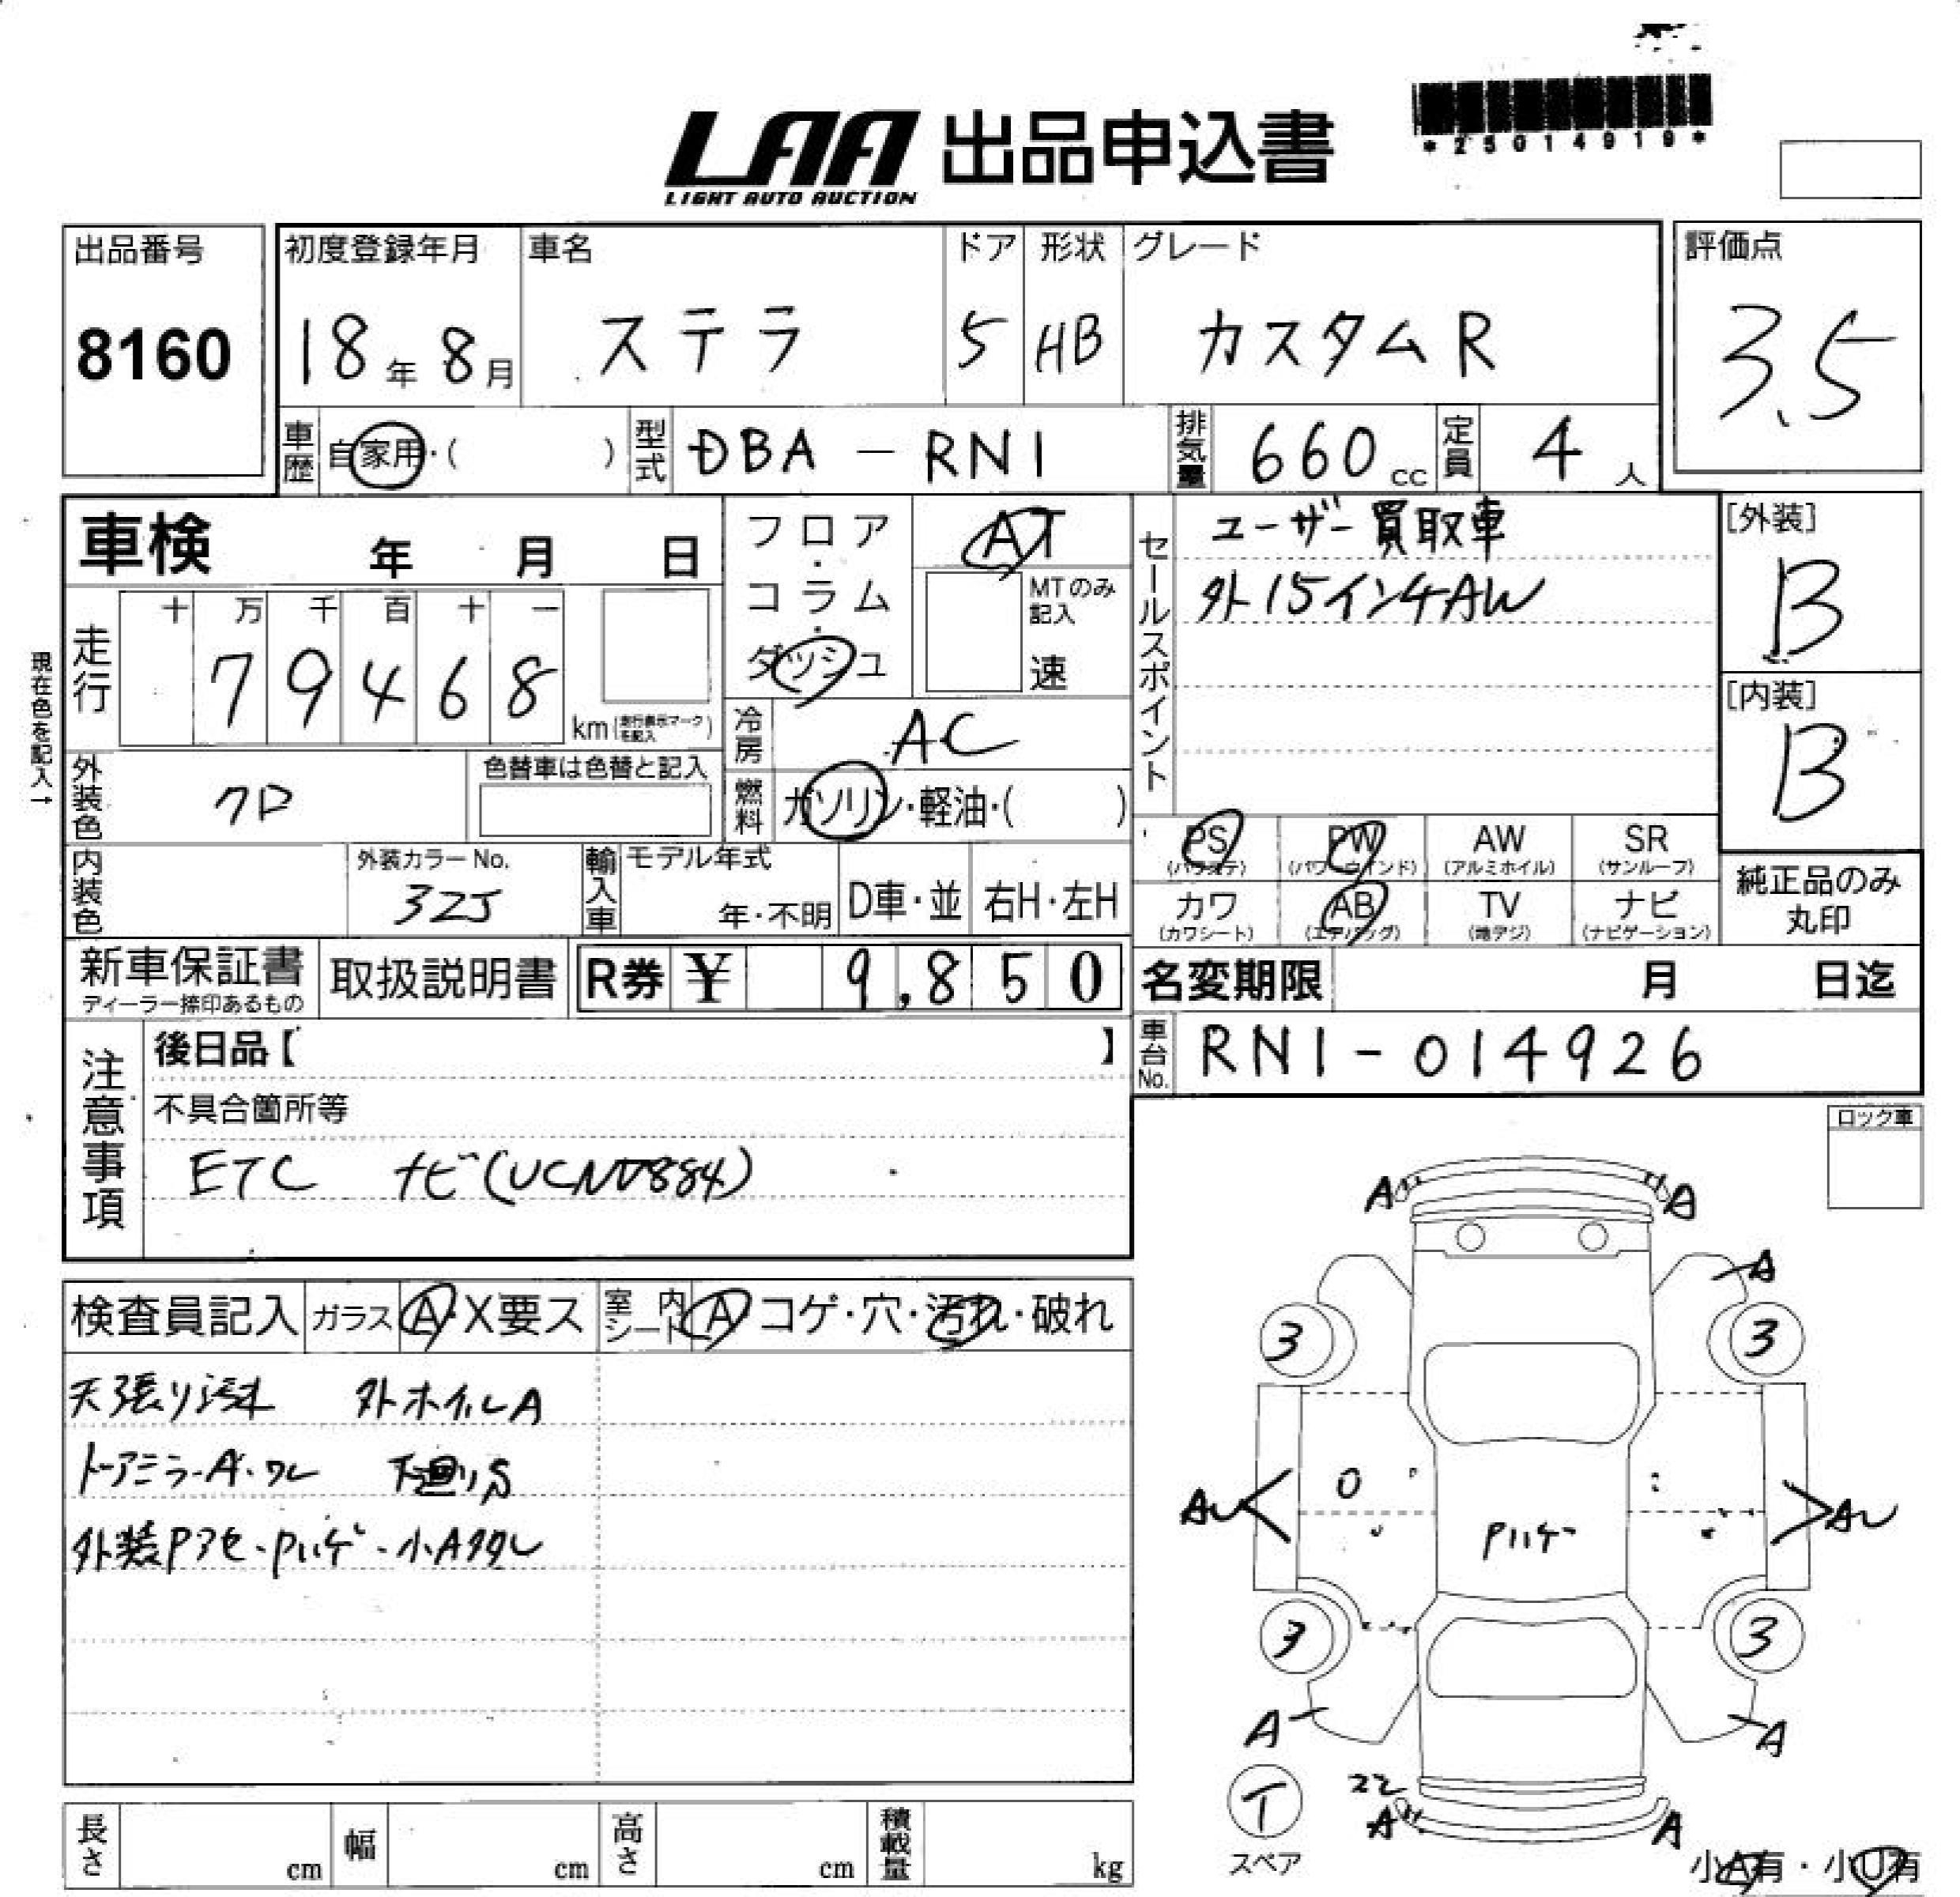 LAA 出品申込書
LIGHT AUTO AUCTION
*25014919*
出品番号
8160
初度登録年月
18年 8月
車名
ステラ
ドア
5
形状
HB
グレード
カスタムR
評価点
3.5
車歴
自家用・( )
型式
DBA-RN1
排気量
660cc
定員
4人
車検 年 月 日
走行
十 万 千 百 十 一
79468
km(走行表示マークを記入)
現在色を記入→
フロア・コラム・ダッシュ
AT
MTのみ記入
速
冷房
AC
燃料
ガソリン・軽油・( )
セールスポイント
ユーザー買取車
外15インチAW
[外装]
B
[内装]
B
外装色
クロ
色替車は色替と記入
内装色
外装カラーNo.
32J
輸入車
モデル年式
年・不明
D車・並
右H・左H
PS (パワステ)
PW (パワーウインド)
AW (アルミホイル)
SR (サンルーフ)
カワ (カワシート)
AB (エアバッグ)
TV (地デジ)
ナビ (ナビゲーション)
純正品のみ
丸印
新車保証書
ディーラー捺印あるもの
取扱説明書
R券 ¥ 9,850
名変期限 月 日迄
車台No.
RN1-014926
注意事項
後日品【 】
不具合箇所等
ETC ナビ(UCNV884)
ロック車
検査員記入
ガラス A・X要ス
室内シート A・コゲ・穴・汚れ・破れ
天張り汚れ 外ホイルA
ドアミラーA・ワレ 下廻りS
外装Pアセ・Pハゲ・小A
A A
A
3 3
AU AU
Pハゲ
3 3
A A
T
スペア
A A
小A有・小U有
長さ cm
幅 cm
高さ cm
積載量 kg